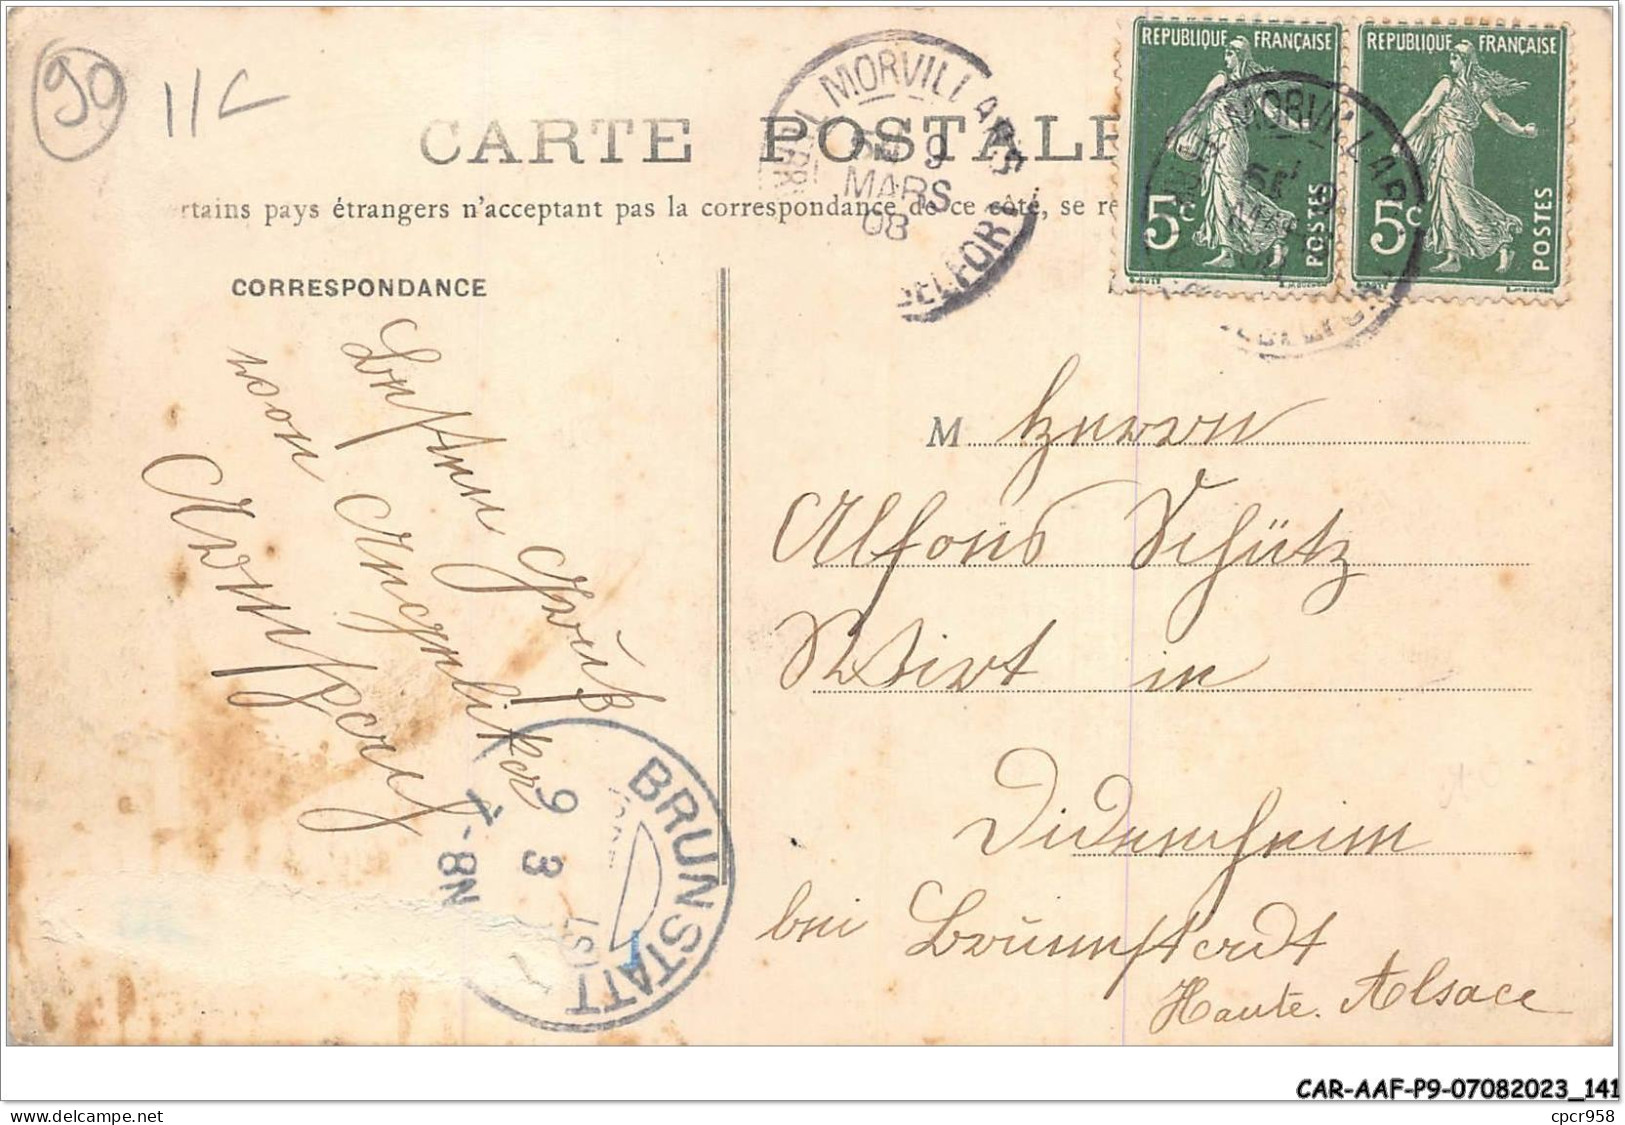 90
11C
CARTE POSTALE
rtains pays étrangers n'acceptant pas la correspondance de ce côté, se re
MORVILLARS
9
MARS
08
BELFORT
REPUBLIQUE FRANÇAISE
5c
POSTES
REPUBLIQUE FRANÇAISE
5c
POSTES
MORVILLARS
CORRESPONDANCE
Besten Gruß
von
M Herrn
Alfons Schütz
Wirt in
Didenheim
bei Brunnstadt
Haute. Alsace
BRUNSTATT
9 3
7-8N
CAR-AAF-P9-07082023_141
delcampe.net
cpcr958